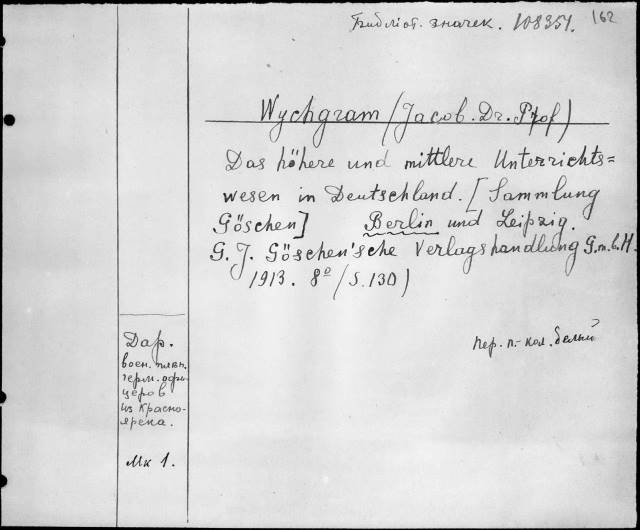 Библіот. значек. 108351. 162
Wychgram (Jacob. Dr. Prof)
Das höhere und mittlere Unterrichts=
wesen in Deutschland. [Sammlung
Göschen] Berlin und Leipzig.
G. J. Göschen'sche Verlagshandlung G.m.b.H.
1913. 8º (S. 130)
пер. п.-кол. белый
Дар.
воен. плѣн.
герм. офи-
церов
из Красно-
ярска.
Мк 1.